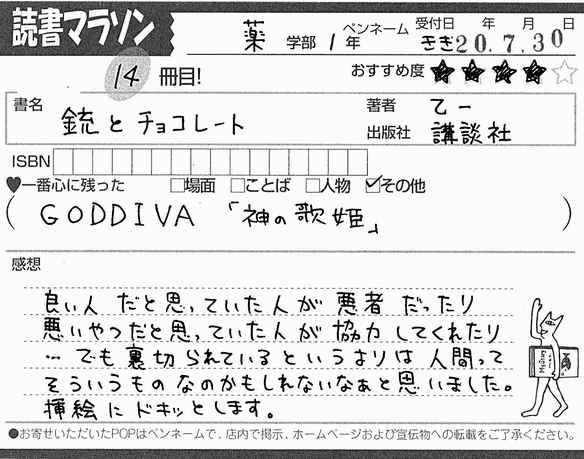 読書マラソン
薬 学部 1年 ペンネーム きぎ 受付日 年 月 日 20.7.30
14 冊目! おすすめ度 ★★★★☆
書名 銃とチョコレート
著者 乙一
出版社 講談社
ISBN
♥一番心に残った □場面 □ことば □人物 ☑その他
( GODDIVA 「神の歌姫」 )
感想
良い人 だと思っていた人が 悪者 だったり
悪いやつだと思っていた人が 協力 してくれたり
… でも 裏切 られているというよりは 人間って
そういうもの なのかもしれないなぁと思いました。
挿絵に ドキッとします。
●お寄せいただいたPOPはペンネームで、店内で掲示、ホームページおよび宣伝物への転載をご了承ください。